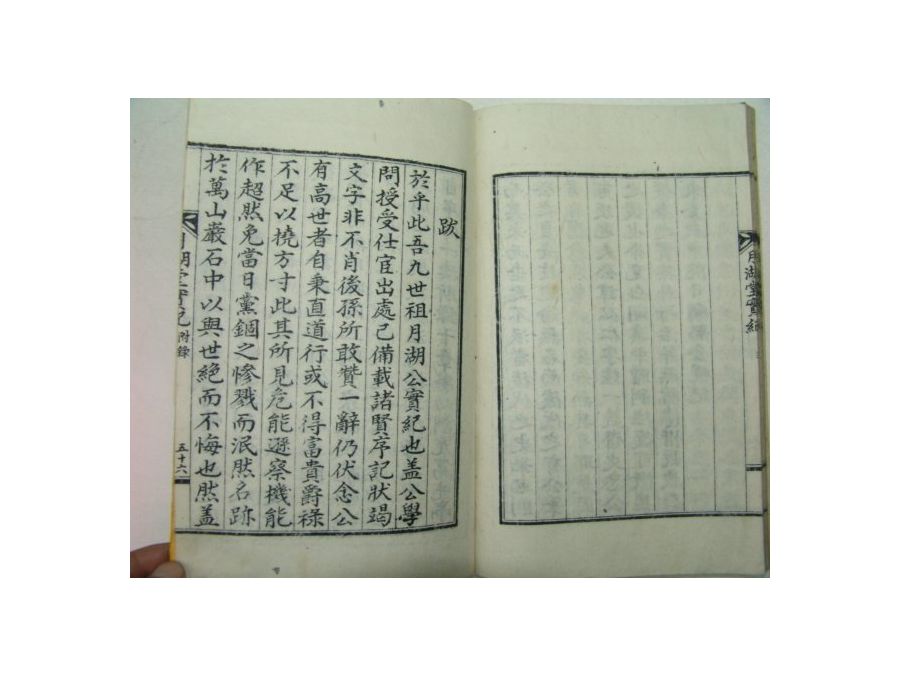 跋
於乎此吾九世祖月湖公實紀也盖公學
問授受仕宦出處已備載諸賢序記狀竭
文字非不肖後孫所敢贊一辭仍伏念公
有高世者自秉直道行或不得富貴爵祿
不足以撓方寸此其所見危能遜察機能
作超然免當日黨錮之慘戮而泯然名跡
於萬山巖石中以與世絕而不悔也然盖
月湖堂實紀
附錄
五十六
月湖堂實紀